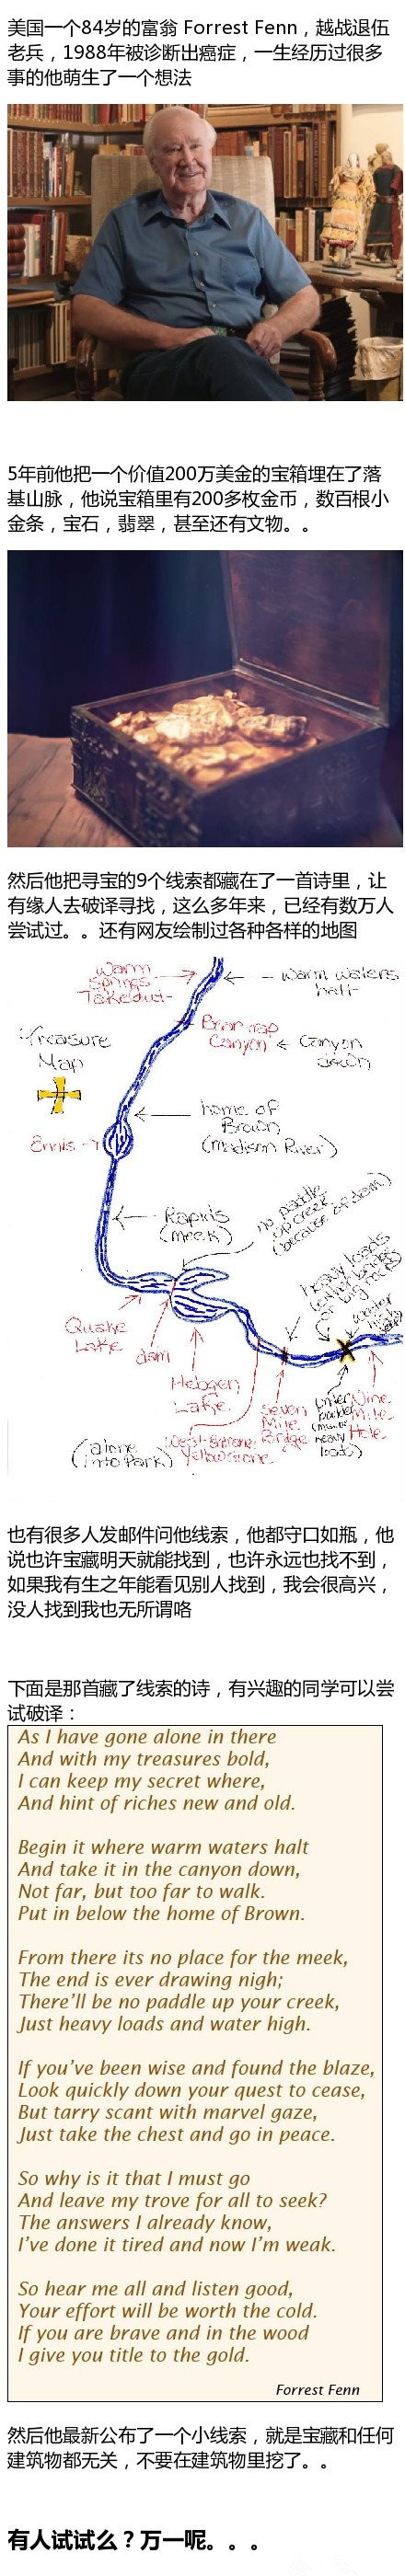 美国一个84岁的富翁 Forrest Fenn，越战退伍
老兵，1988年被诊断出癌症，一生经历过很多
事的他萌生了一个想法
5年前他把一个价值200万美金的宝箱埋在了落
基山脉，他说宝箱里有200多枚金币，数百根小
金条，宝石，翡翠，甚至还有文物。。
然后他把寻宝的9个线索都藏在了一首诗里，让
有缘人去破译寻找，这么多年来，已经有数万人
尝试过。。还有网友绘制过各种各样的地图
Warm
Springs
Takeout
Warm waters
halt
Treasure
Map
Bear trap
Canyon
Canyon
down
home of
Brown
(Madison River)
Ennis
Rapids
(meek)
no paddle
up creek
(because of dam)
heavy loads
Quake
Lake
dam
Hebgen
Lake
West Entrance
Yellowstone
Seven
Mile
Bridge
Nine
Mile
Hole
(alone
into Park)
也有很多人发邮件问他线索，他都守口如瓶，他
说也许宝藏明天就能找到，也许永远也找不到，
如果我有生之年能看见别人找到，我会很高兴，
没人找到我也无所谓咯
下面是那首藏了线索的诗，有兴趣的同学可以尝
试破译：
As I have gone alone in there
And with my treasures bold,
I can keep my secret where,
And hint of riches new and old.
Begin it where warm waters halt
And take it in the canyon down,
Not far, but too far to walk.
Put in below the home of Brown.
From there its no place for the meek,
The end is ever drawing nigh;
There'll be no paddle up your creek,
Just heavy loads and water high.
If you've been wise and found the blaze,
Look quickly down your quest to cease,
But tarry scant with marvel gaze,
Just take the chest and go in peace.
So why is it that I must go
And leave my trove for all to seek?
The answers I already know,
I've done it tired and now I'm weak.
So hear me all and listen good,
Your effort will be worth the cold.
If you are brave and in the wood
I give you title to the gold.
Forrest Fenn
然后他最新公布了一个小线索，就是宝藏和任何
建筑物都无关，不要在建筑物里挖了。。
有人试试么？万一呢。。。